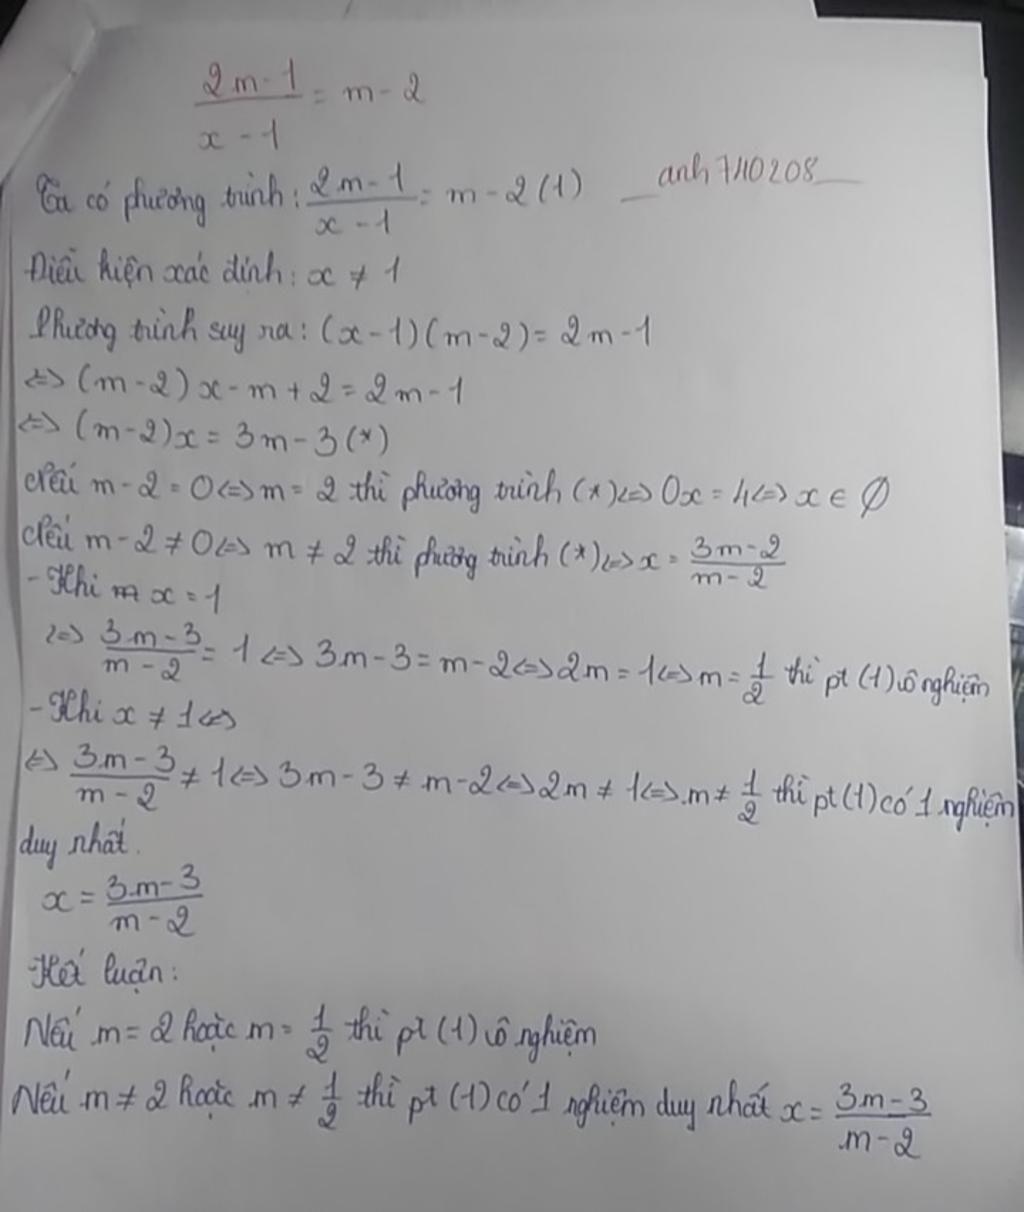 2m-1/x-1 = m-2
Ta có phương trình: 2m-1/x-1 = m-2 (1)
anh740208
Điều kiện xác định: x ≠ 1
Phương trình suy ra: (x-1)(m-2) = 2m-1
<=> (m-2)x - m + 2 = 2m-1
<=> (m-2)x = 3m-3 (*)
Nếu m-2 = 0 <=> m = 2 thì phương trình (*) <=> 0x = 4 <=> x ∈ ∅
Nếu m-2 ≠ 0 <=> m ≠ 2 thì phương trình (*) <=> x = 3m-2/m-2
- Khi x = 1
<=> 3m-3/m-2 = 1 <=> 3m-3 = m-2 <=> 2m = 1 <=> m = 1/2 thì pt (1) vô nghiệm
- Khi x ≠ 1 <=>
<=> 3m-3/m-2 ≠ 1 <=> 3m-3 ≠ m-2 <=> 2m ≠ 1 <=> m ≠ 1/2 thì pt (1) có 1 nghiệm
duy nhất.
x = 3m-3/m-2
Kết luận:
Nếu m = 2 hoặc m = 1/2 thì pt (1) vô nghiệm
Nếu m ≠ 2 hoặc m ≠ 1/2 thì pt (1) có 1 nghiệm duy nhất x = 3m-3/m-2